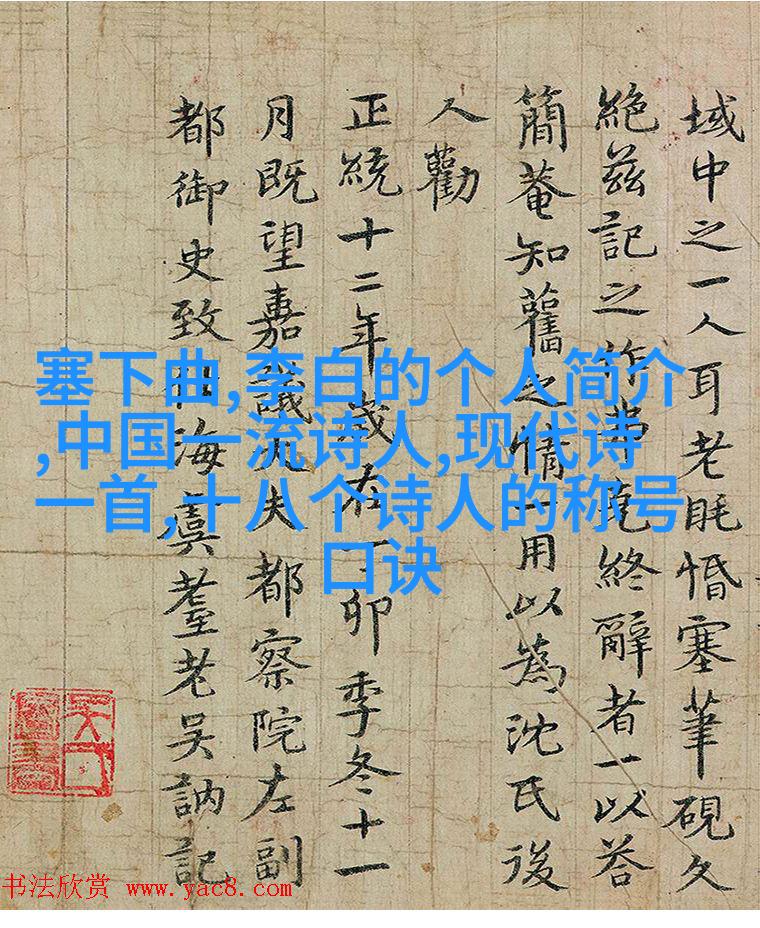 域中之一人耳老眊惛塞筆硯久
絶兹記之作弗克終辭者一以荅
簡菴知舊之情一用以為沈氏後
人勸
正統十二年歲在丁卯季冬十一
月既望嘉議大夫都察院左副
都御史致仕海虞耋老吳訥記
塞下曲,李白的个人简介
,中国一流诗人,现代诗
一首,十八个诗人的称号
口诀
书法欣赏 www.yac8.com